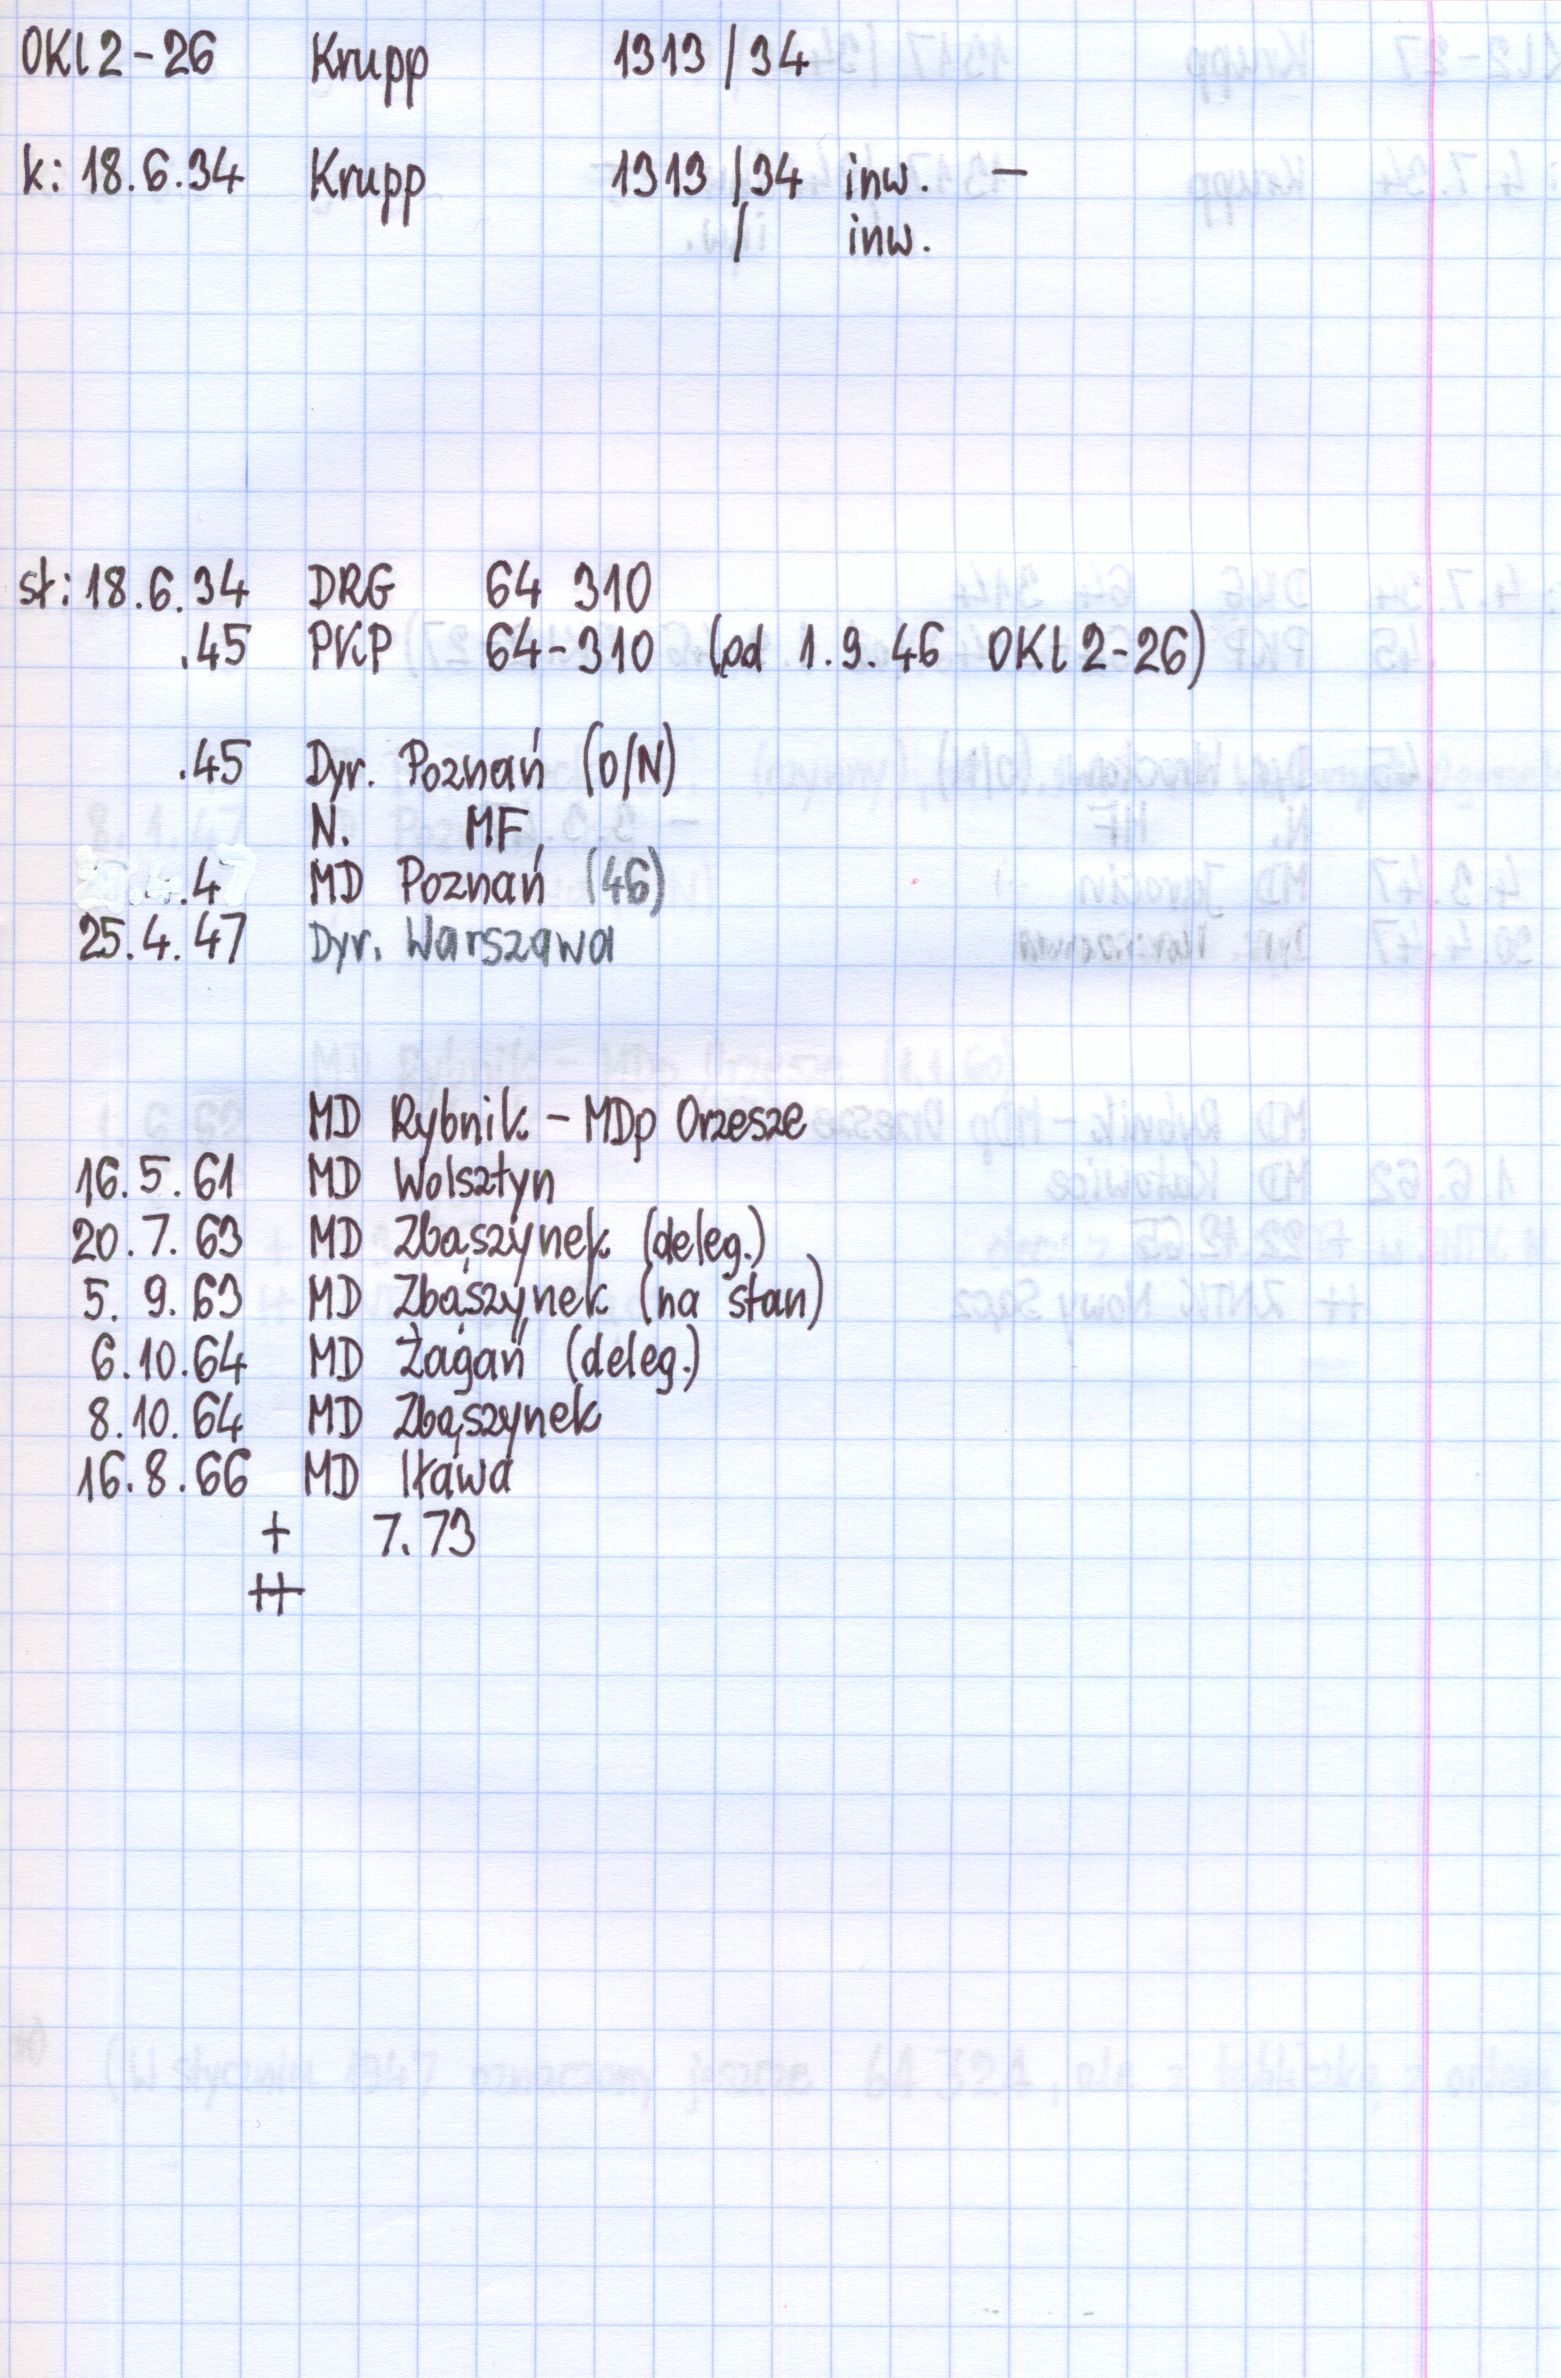 OKl 2-26 Krupp 1313 / 34
k: 18.6.34 Krupp 1313 / 34 inw. –
/ inw.
st: 18.6.34 DRG 64 310
.45 PKP 64-310 (od 1.9.46 OKl 2-26)
.45 Dyr. Poznań (O/N)
N. MF
.4 MD Poznań (46)
25.4.47 Dyr. Warszawa
MD Rybnik – MDp Orzesze
16.5.61 MD Wolsztyn
20.7.63 MD Zbąszynek (deleg.)
5.9.63 MD Zbąszynek (na stan)
6.10.64 MD Żagań (deleg.)
8.10.64 MD Zbąszynek
16.8.66 MD Iława
+ 7.73
++